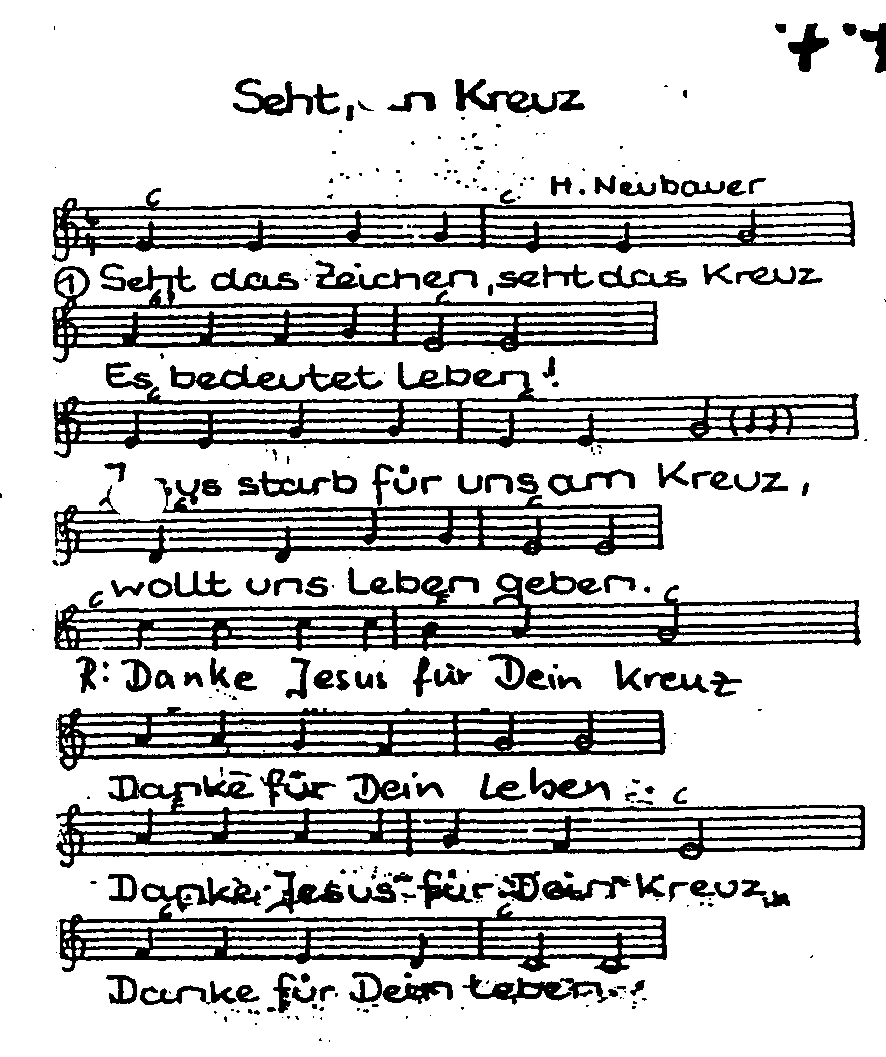 Seht, Kreuz
H. Neubauer
C C
① Seht das Zeichen, seht das Kreuz
G7 C
Es bedeutet Leben!
C C
starb für uns am Kreuz,
G7 C
wollt uns Leben geben.
C F C
R: Danke Jesus für Dein Kreuz
Danke für Dein Leben
F C
Danke Jesus für Dein Kreuz
G C
Danke für Dein Leben